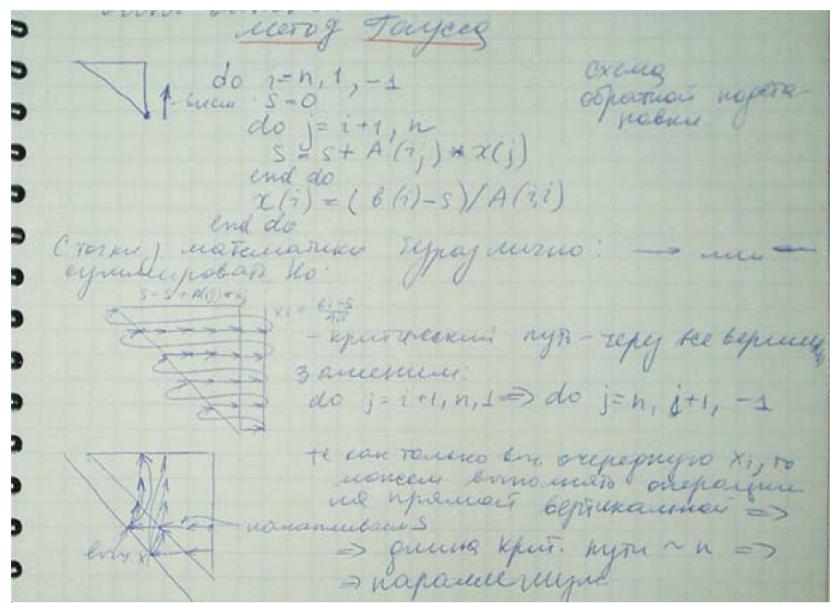 метод Гаусса
do i=n, 1, -1
S=0
do j=i+1, n
S=S+A(i,j)*x(j)
end do
x(i)=(b(i)-S)/A(i,i)
end do
схема
обратной подста-
новки
С точки з. математики безразлично: → или ←
суммировать. Но:
S=S+A(ij)*xj
xi = bi-S / Aii
- критический путь - через все вершины
Заменим:
do j=i+1,n,1 => do j=n, j+1, -1
те как только выч. очередную xi, то
можем выполнять операции
на прямой вертикальной =>
накапливаем S
выч. xi
=> длина крит. пути ~ n =>
=> параллелизм